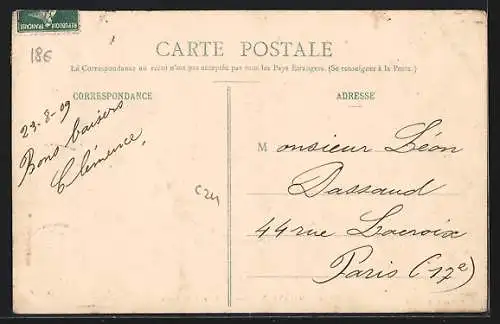 REPUBLIQUE FRANÇAISE
18€
CARTE POSTALE
La Correspondance au recto n'est pas acceptée par tous les Pays Etrangers. (Se renseigner à la Poste.)
CORRESPONDANCE
29-8-09
Bons baisers
Clémence,
C241
ADRESSE
Monsieur Léon
Dassaud
44 rue Lacroix
Paris (17e)